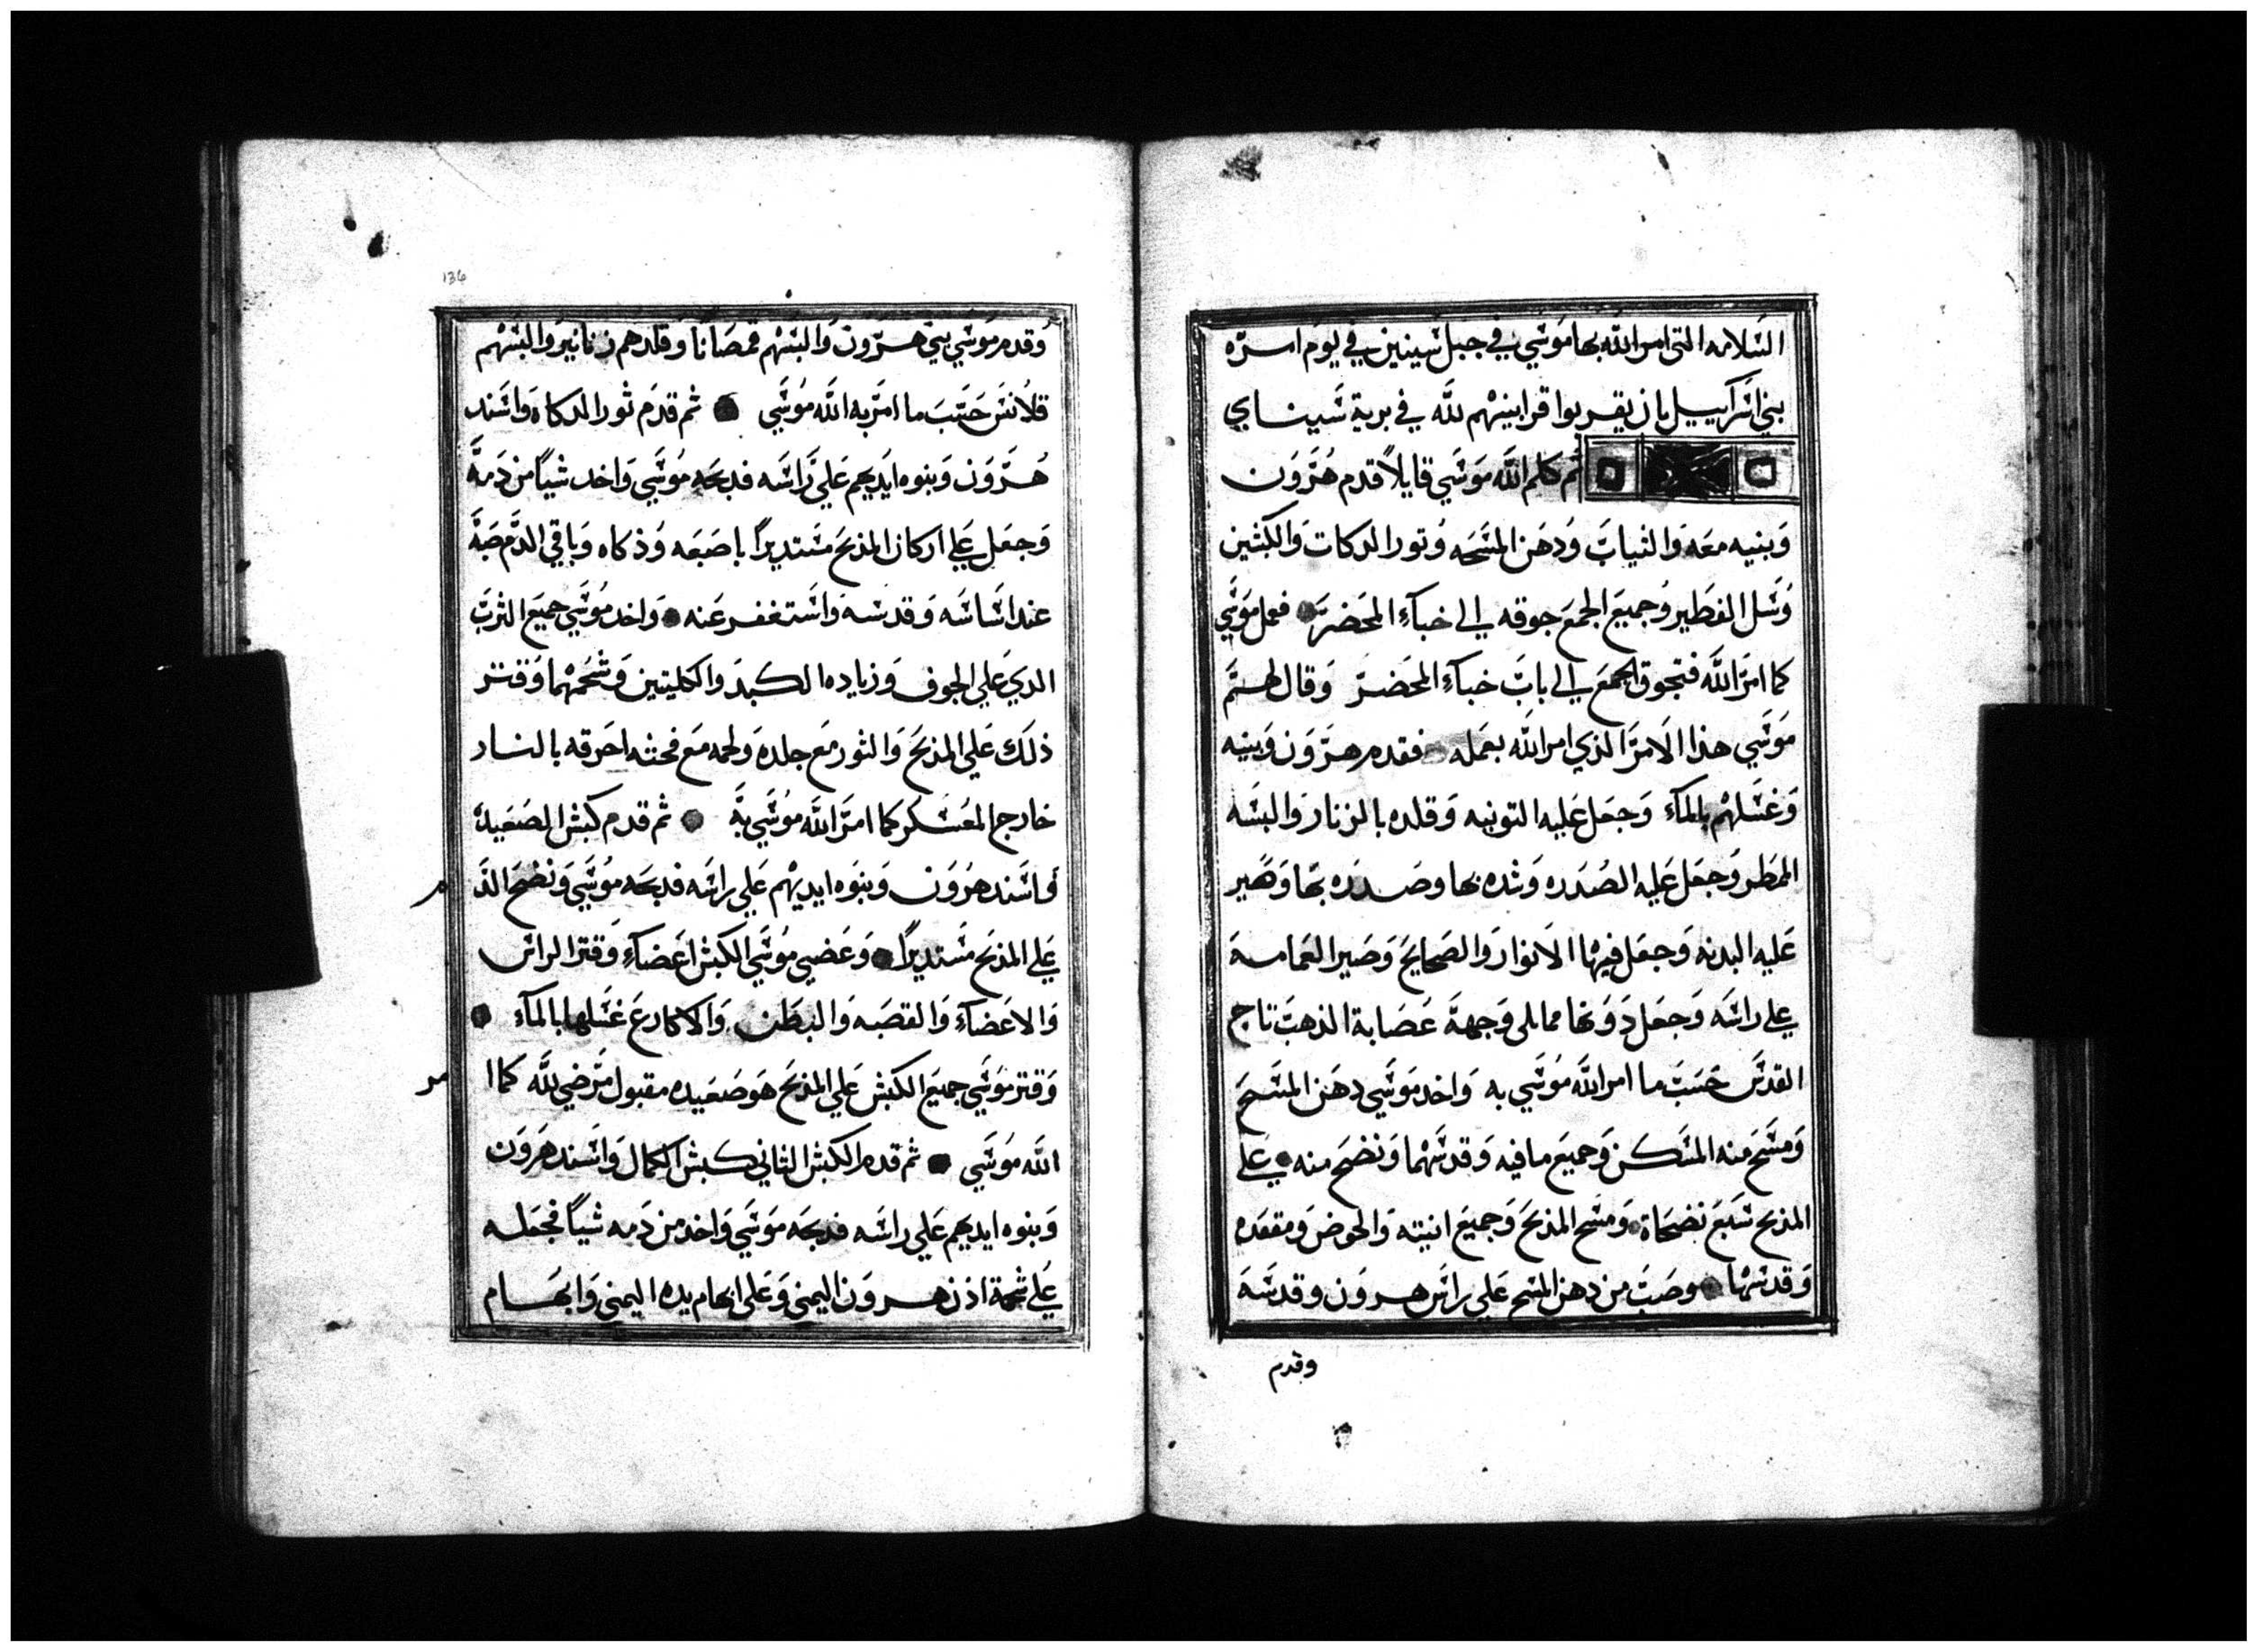 السَلامه التى امر الله بها مَوسَي في جبل سَينين في يوَم امَرَه
بني اسَرآييل بان يقربوا قرابينهم للَه في برية سَيناي
ثم كلم اللَه مَوسَي قايلاً قدم هُرَوَن
وَبنيه معَه وَالثيابَ وُدهَن المسَحَه وُتور الدكات وَالكبشين
وُسَل الفطَير وُجميعَ الجمعَ جوقه الي خبآءِ المحَضرَ فعمل موَسَي
كما امرَ اللَه فتجوق الجمعَ الي بابَ خبآءِ المحَضرَ وَقال لهمَ
مَوسَي هذا الاَمرَ الذي امر اللَه بعمَله فقدم هرَوَن وَبنيه
وَغسَلهْم بالمآء وَجعَل عَليه التونيه وَقلده بالزنار وَالبسَه
الممطَر وُجعَل عَليه الصُدَره وَشده بها وصَدرَه بهَا وَصَير
عَليه البدنه وَجعَل فيهْا الاَنوارَ وَالصَحايحَ وَصَير العَمامه
علي راسَه وَجعَل دَوَنها مما يلي وَجههَ عَصَابة الذهبَ تاج
القدسَ حسَبَ ما امر اللَه مُوسَي به وَاخد مَوسَي دهَن المسَحَ
وَمسَحَ منه المسَكن وَجميعَ ما فيه وَقدسَهْما وَنضحَ منه علي
المذبح سَبعَ نضحَاة وَمسَح المذبحَ وَجميعَ انيته وَالحوضَ وَمقعَده
وَقدسَهْا وصَبَ من دهن المسَح عَلي راسَ هروَن وقدسَهَ
وقدم
136
وُقدم مَوسَي بني هرَوَن وَالبسَهْم قمصَانا وَقلدهم زنانير وَالبسَهْم
قلاُنسَ حَسَبَ ما امرَ به اللَه مُوسَي ثم قدَم ثور الدكاه وَاسَند
هُرَّوَن وَبنوه ايَديهم عَلي رَاسَه فدبحَه مُوسَي وَاخد شياً من دَمهَ
وَجعَل علي اركان المذبحَ مسَتديراً باصَبعَه وُذكاه وَباقي الدَم صَبهَ
عند اسَاسَه وَقدسَه وَاسَتغفر عَنه وَاخد مُوسَي جميعَ الثربَ
الدي عَلي الجوف وَزياده الكبدَ وَالكليتين وَشحَمهْما وَقتر
ذلك عَلي المذبحَ وَالثور معَ جلدهَ وَلحمه معَ فحثه احَرقه بالنار
خارج المعُسَكر كما امرَ اللَه مُوسَي بهَ ثم قدم كبش الصَعَيده
وَاسَند هرُوَن وَبنوَه ايديهْم عَلي راسَه فدبحَه مُوسَي وَنضحَ الدَم
عَلي المذبحَ مسَتديراً وَعَضي مُوسَي الكبش اعَضآءِ وَقتر الراسَ
وَالاعَضآءِ وَالقصَبه وَالبطَن وَالاكارعَ غسَلها بالمآء
وَقتر مَوسَي جميعَ الكبش عَلي المذبحَ هوَ صَعَيده مقبول مرَضي للَه كما امر
اللَه مُوسَي ثم قدم الكبش الثاني كبش الكمال وَاسَند هَروَن
وَبنوه ايديهم عَلي راسَه فدبحَه مَوسَي وَاخد من دَمه شياً فجعَله
علي شحمة اذن هروَن اليمني وَعَلي ابهام يده اليمني وَابهَام